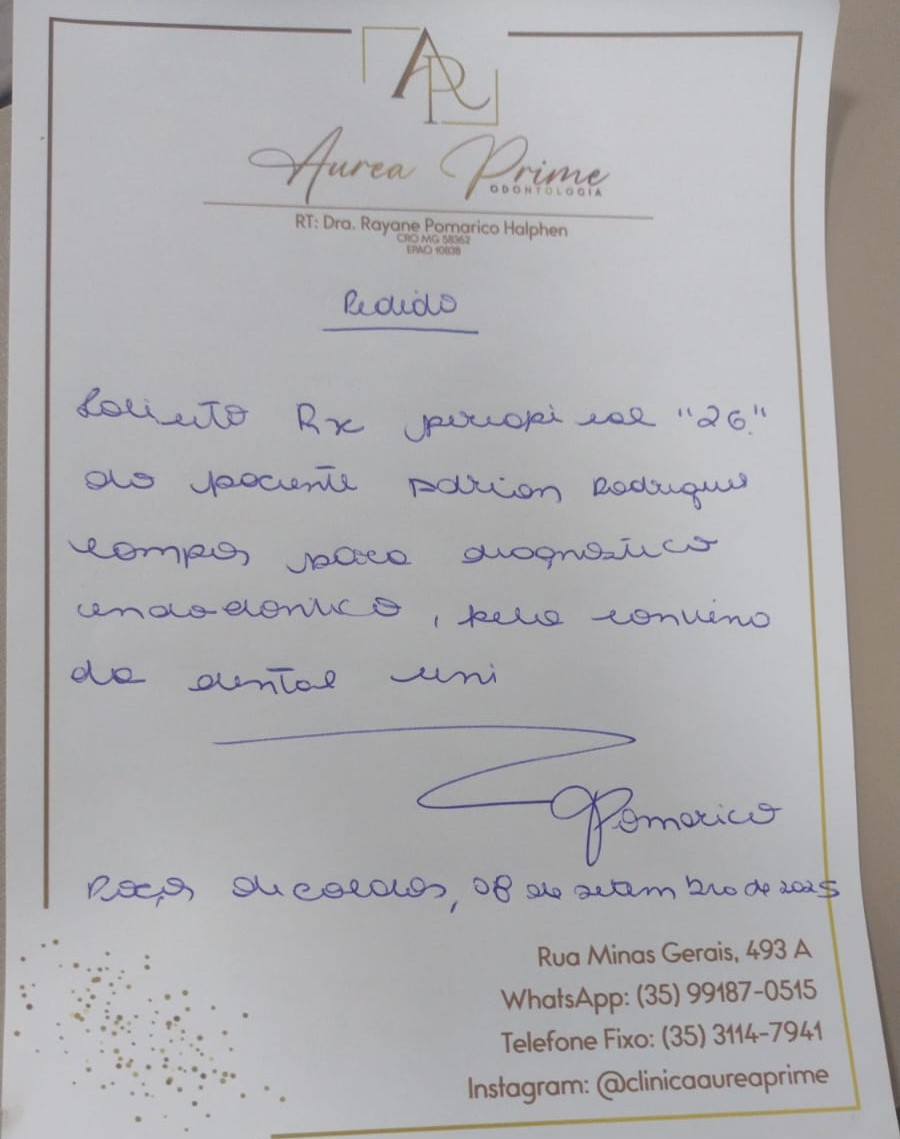 AR
Aurea Prime
ODONTOLOGIA
RT: Dra. Rayane Pomarico Halphen
CRO MG 58362
EPAO 10838
Pedido
Solicito Rx periapical "26"
do paciente Adrian Rodrigues
Campos para diagnóstico
endodontico, pelo convenio
da dental uni
Pomarico
Poços de caldas, 08 de setembro de 2025
Rua Minas Gerais, 493 A
WhatsApp: (35) 99187-0515
Telefone Fixo: (35) 3114-7941
Instagram: @clinicaaureaprime